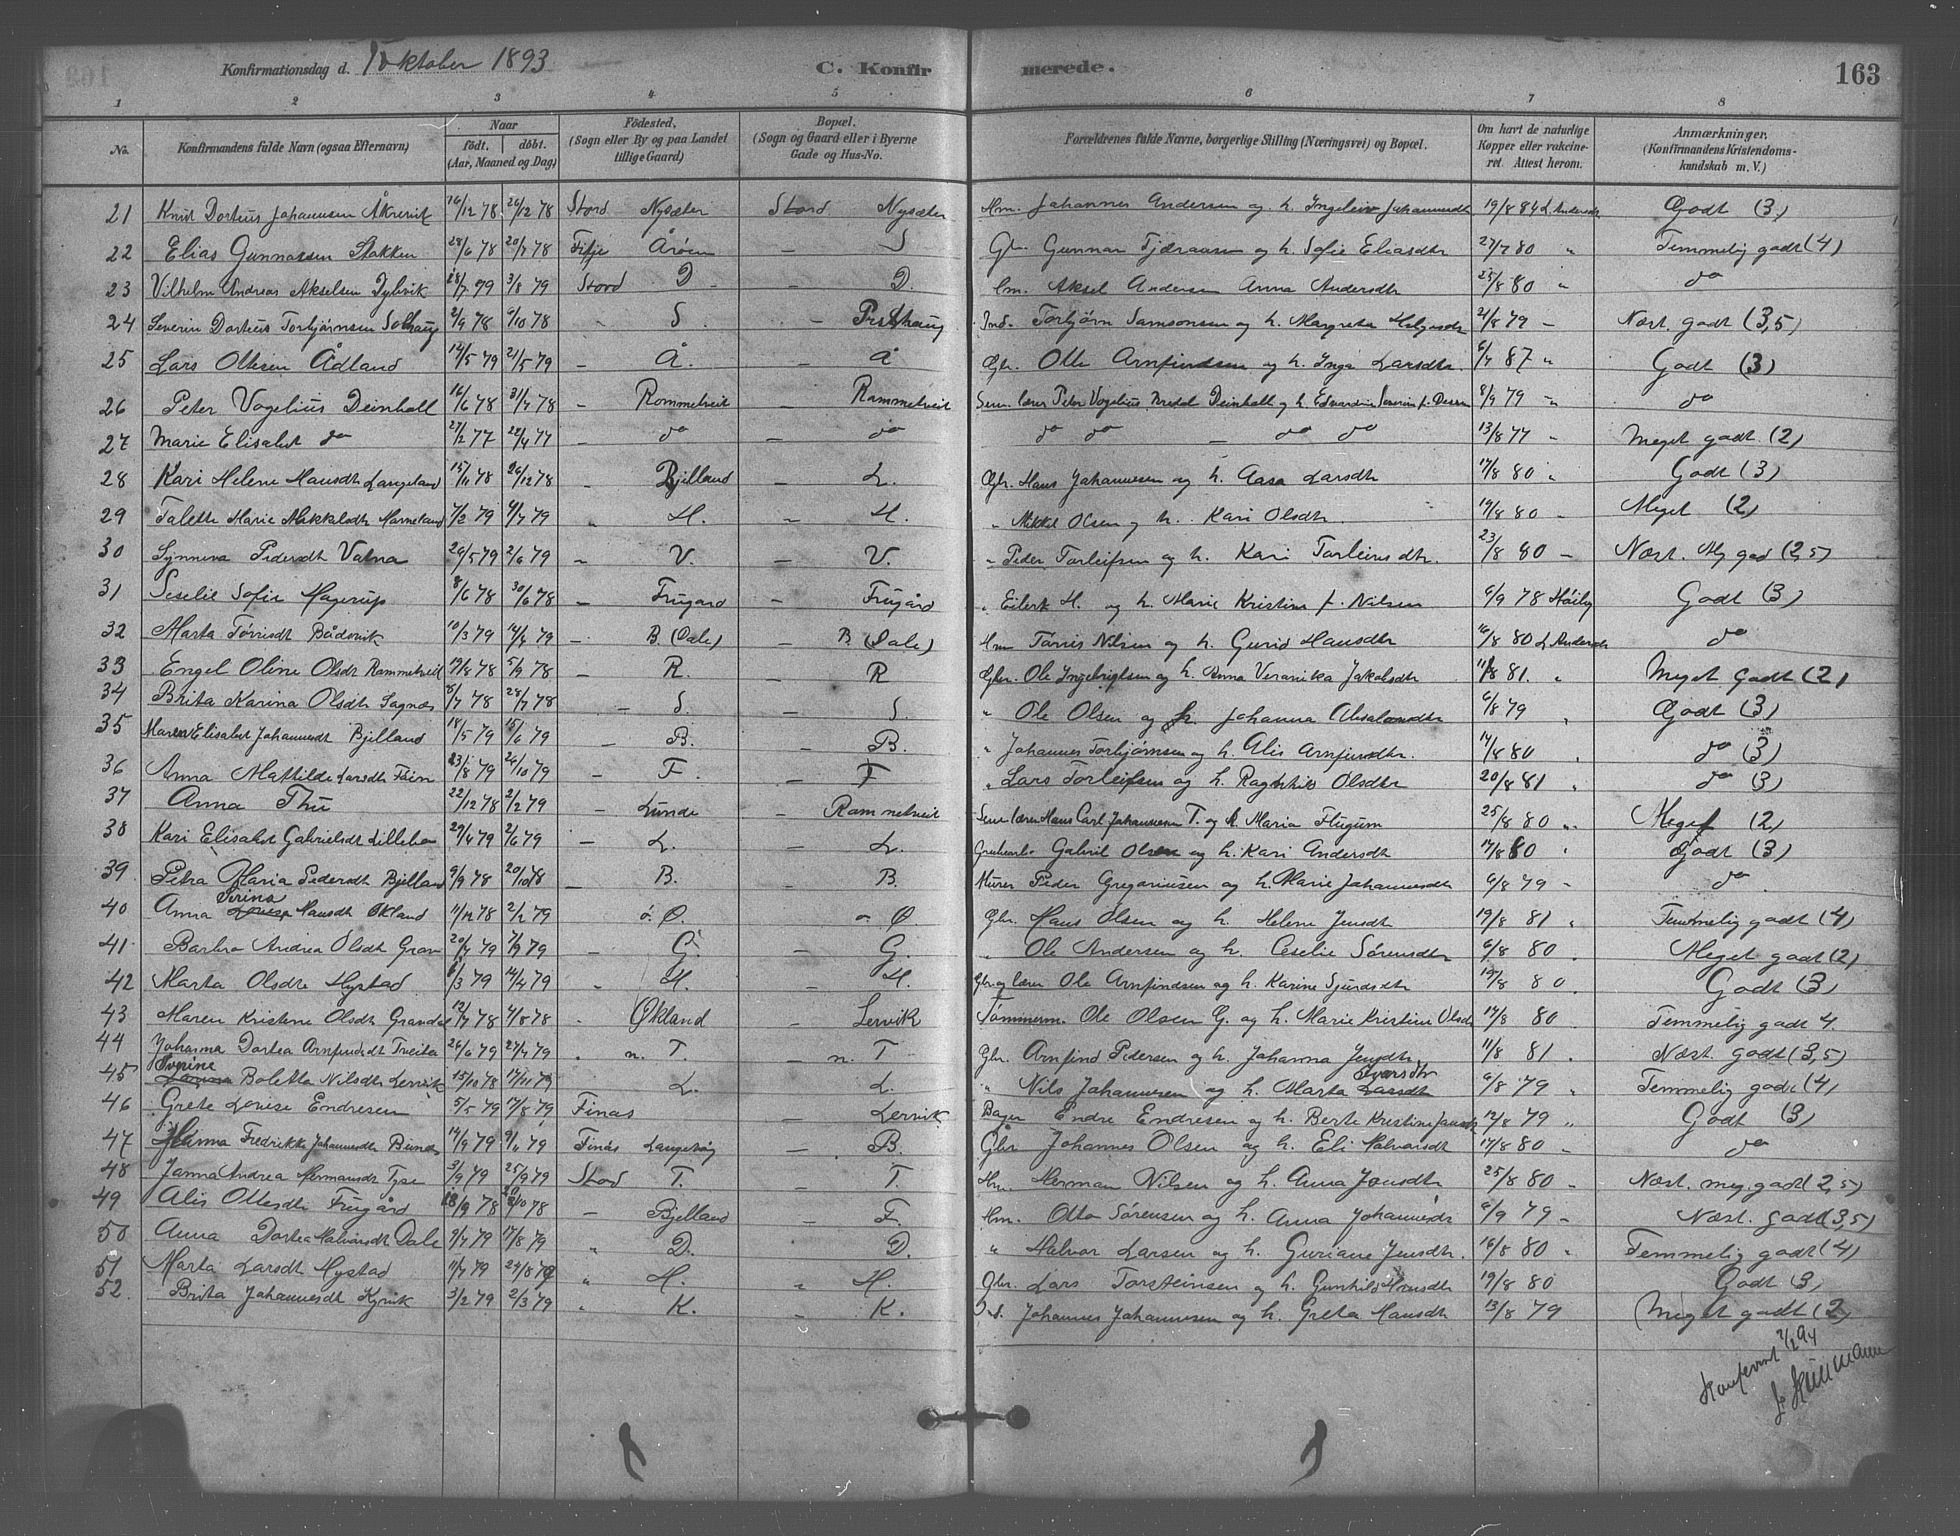 Konfirmationsdag d. 1 Oktober 1893 C. Konfirmerede. 163
1 2 3 4 5 6 7 8
No. Konfirmandens fulde Navn (ogsaa Efternavn) Naar födt. döbt. (Aar, Maaned og Dag) Födested. (Sogn eller By og paa Landet tillige Gaard) Bopæl. (Sogn og Gaard eller i Byerne Gade og Hus-No. Forældrenes fulde Navne, borgerlige Stilling (Næringsvei) og Bopæl. Om havt de naturlige Kopper eller vaccineret. Attest herom. Anmærkninger. (Konfirmandens Kristendomskundskab m. V.)
21 Knut Dorteus Johannesen Åkrevik 16/12 78 26/12 78 Stord Nysæter Stord Nysæter Hm. Johannes Andersen og h. Johannesdtr 19/8 84 L. Andersen Godt (3)
22 Elias Gunnarsen Stokken 28/6 78 20/7 78 Fitje Årøen — S Gbr. Gunnar og h. Sofie Eliasdtr 27/7 80 " Temmelig godt (4)
23 Vilhelm Andreas Akselsen 28/7 79 3/8 79 Stord D — D. Hm. Aksel Andersen Anna Andersdtr 25/8 80 " do
24 Severin Dorteus Torbjørnsen Solhaug 2/9 78 6/10 78 - S. - Prestshaug Ind. Torbjørn Samsonsen og h. Margreta Helgesdtr 21/8 79 - Næst. godt (3,5)
25 Lars Ottesen Ådland 12/5 79 21/5 79 - Å. - Å Gbr. Otte Arnfindsen og h. Inga Larsdtr. 6/7 87 " Godt (3)
26 Peter Vogelius Deinboll 16/6 78 31/7 78 - Rommetveit - Rommetveit Sem. lærer Peter Vogelius Deinboll og h. Severine f. 8/9 79 - do
27 Marie Elisabet do 27/2 77 22/4 77 - do - do do do - do do 13/8 77 " Meget godt (2)
28 Kari Helene Hansdtr Langeland 15/11 78 26/12 78 Bjelland - L. Gbr. Hans Johannesen og h. Aasa Larsdtr 17/8 80 " Godt (3)
29 Talette Marie Mikkelsdtr Horneland 7/2 79 6/7 79 " H. - H. " Mikkel Olsen og h. Kari Olsdtr. 19/8 80 - Meget (2)
30 Synneva Pedersdt Vatna 26/5 79 2/6 79 - V. - V. " Peder Torleifsen og h. Kari Torleivsdtr. 23/8 80 - Næst. Mg god (2,5)
31 Seselie Sofie Hagerup 8/6 78 30/6 78 - Frugard - Frugård " Eilert H. og h. Marie Kristine f. Nilsen 6/9 78 Godt (3)
32 Marta Tørrisdt Bådsvik 10/3 79 14/4 79 - B (Dale) B (Dale) Hm Tørris Nilsen og h. Gurid Hansdtr 16/8 80 L Andersen do
33 Engel Oline Olsdt Rommetveit 19/8 78 5/9 78 - R. - R Gbr. Ole Ingebrigtsen og h. Anna Veronika Jakobsdtr 11/8 81. " Meget godt (2)
34 Brita Karina Olsdt Sagnæs 8/7 78 28/7 78 - S. - S. " Ole Olsen og h. Johanna Absalonsdtr 6/8 79 " Godt (3)
35 Maren Elisabet Johannesdt Bjelland 18/5 79 15/6 79 - B. - B. " Johannes Torbjørnsen og h. Alis Arnfinsdtr. 14/8 80 " do (3)
36 Anna Matilde Larsdt Føien 23/8 79 26/10 79 - F. - F " Lars Torleifsen og h. Ragnhild Olsdtr 20/8 81 " do (3)
37 Anna Thu 22/12 78 2/2 79 - Lunde - Rommetveit Sem lærer Hans Carl Johannesen T. og h. Maria Flugum 25/8 80 " Meget (2)
38 Kari Elisabet Gabrielsdt Lillebø 29/4 79 2/6 79 - L. - L. Gabriel Olsen og h. Kari Andersdtr 17/8 80 " Godt (3)
39 Petra Maria Pedersdt Bjelland 9/9 78 20/10 78 - B. - B. Murer Peder Gregoriusen og h. Marie Johannesdtr 6/8 79 - do.
40 Anna Sirina Hansdt Økland 11/12 78 2/2 79 ö. Ø. ö. Ø. Gbr. Hans Olsen og h. Helene Jensdtr 19/8 81 " Temmelig godt (4)
41 Barbra Andrea Olsdt Grov 20/7 79 7/9 79 - G. - G. " Ole Andersen og h. Ceselie Sørensdtr 6/8 80. Meget godt (2)
42 Marta Olsdtr Hystad 6/3 79 14/4 79 " H. - H. Gbr. og lærer Ole Arnfindsen og h. Karine Sjursdtr 17/8 80. Godt (3)
43 Maren Kristene Olsdt 12/7 78 4/8 78 - Økland - Lervik Tømmerm. Ole Olsen G. og h. Marie Kristine Olsdtr 14/8 80 Temmelig godt 4.
44 Johanna Dortea Arnfindsdt Tveita 26/6 79 27/7 79 " n. T. - n. T Gbr Arnfind Pedersen og h. Johanna Jensdtr. 11/8 81. Næst. godt (3,5)
45 Severine Boletta Nilsdt Lervik 15/10 78 17/11 78 L. - L. " Nils Johannesen og h. Marta Iversdtr 6/8 79 " Temmelig godt (4)
46 Grete Lovise Endresen 5/5 79 17/8 79 Finås - Lervik Bager Endre Endresen og h. Berte Kristine 12/8 79 " Godt (3)
47 Hanna Fredrikke Johannesdt Bundæs 14/9 79 9/11 79 Finås Langevåg - B. Gbr Johannes Olsen og h. Eli Halvorsdt 17/8 80 - do
48 Janna Andrea Hermansdt Tyse 3/9 79 25/9 79 Stord T. - T. Hm. Herman Nilsen og h. Anna Jonsdtr 25/8 80 - Næst. meg. godt (2,5)
49 Alis Ottesdtr Frugård 18/9 78 /10 78 - Bjelland - F. Hm. Otto Sørensen og h. Anna Johannesdt 6/9 79 - Næst. godt (3,5)
50 Anna Dortea Halvorsdt Dale 9/7 79 17/8 79 " D. D. " Halvor Larsen og h. Guriane Jensdtr. 16/8 80 " Temmelig godt (4)
51 Marta Larsdt Hystad 11/7 79 24/8 79 " H. " H. Gbr. Lars Torsteinsen og h. Gunhild Hansdtr 19/8 80 Godt (3)
52. Brita Johannesdt Kyvik 3/2 79 2/3 79 " K. " K. Ind. Johannes Johannesen og h. Greta Hansdtr 13/8 79 Meget godt (2)
Konfereret 2/2 94